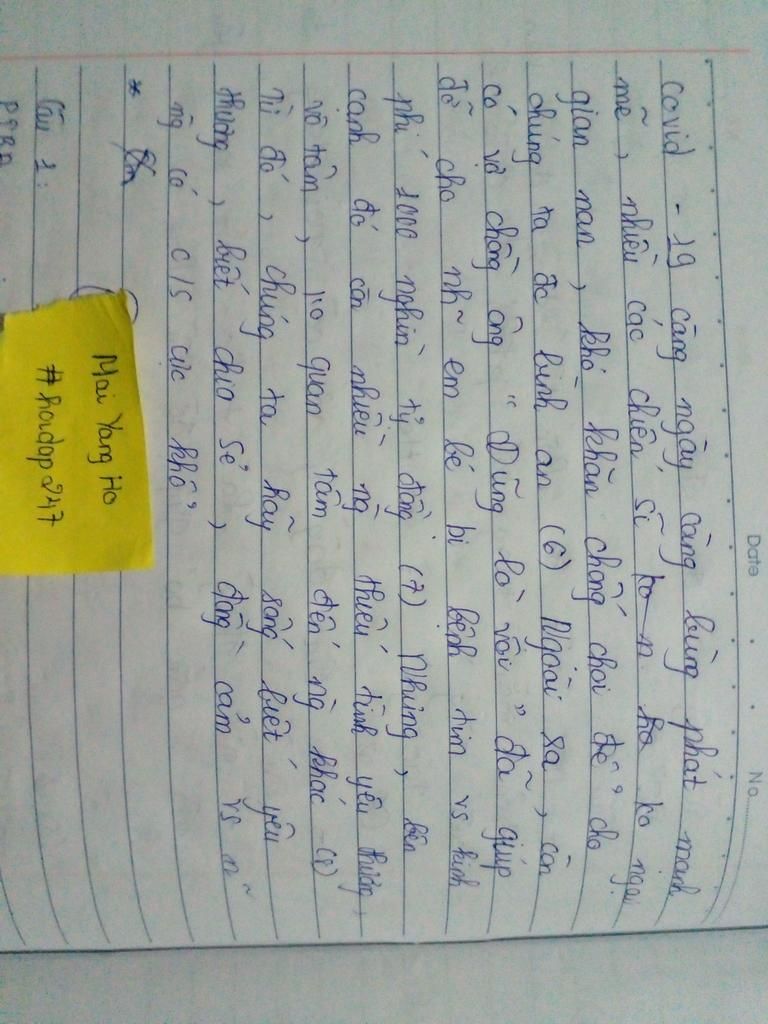 Date No.
Covid - 19 càng ngày càng bùng phát mạnh
mẽ, nhiều các chiến sĩ ko ko ngại
gian nan, khó khăn chống chọi để cho
chúng ta đc bình an (6) Ngoài ra, còn
có vợ chồng ông " Dũng lò vôi " đã giúp
đỡ cho nh~ em bé bị bệnh tim vs kinh
phí 1000 nghìn tỷ đồng (7) Nhưng, bên
cạnh đó còn nhiều ng thiếu tình yêu thương,
vô tâm, ko quan tâm đến ng khác (8)
Từ đó, chúng ta hãy sống biết yêu
thương, biết chia sẻ, đồng cảm vs n~
ng có c/s cực khổ
*
Câu 1:
PTBĐ
Mai Vang Ho
# hoidap247